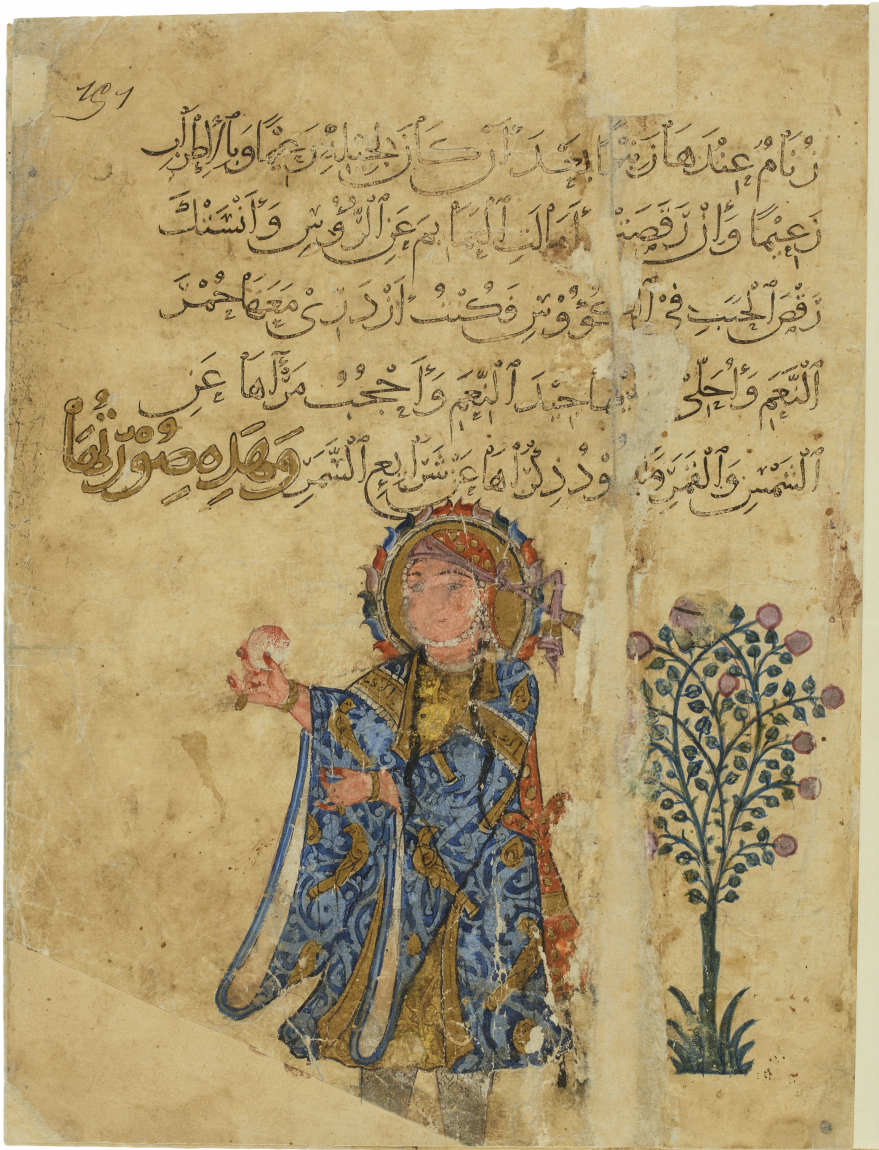 زُنَامُ عِنْدَهَا زَنِيمًا بَعْدَ أَنْ كَانَ لِجِيلِهِ زَعِيمًا وَبِالْإِطْرَابِ
زَعِيمًا وَإِنْ رَقَصَتْ أَمَالَتِ الْعَمَائِمَ عَنِ الرُّؤُوسِ وَأَنْسَتْكَ
رَقْصَ الْحَبَبِ فِي الْكُؤُوسِ فَكُنْتُ أَزْدَرِي مَعَهَا حُمْرَ
النَّعَمِ وَأُحَلِّي جِيدَ النِّعَمِ وَأَحْجُبُ مَرْآهَا عَنِ
الشَّمْسِ وَالْقَمَرِ ذِكْرَاهَا عَنْ شَرَايِعِ السَّمَرِ وَهَذِهِ صُوْرَتُهَا